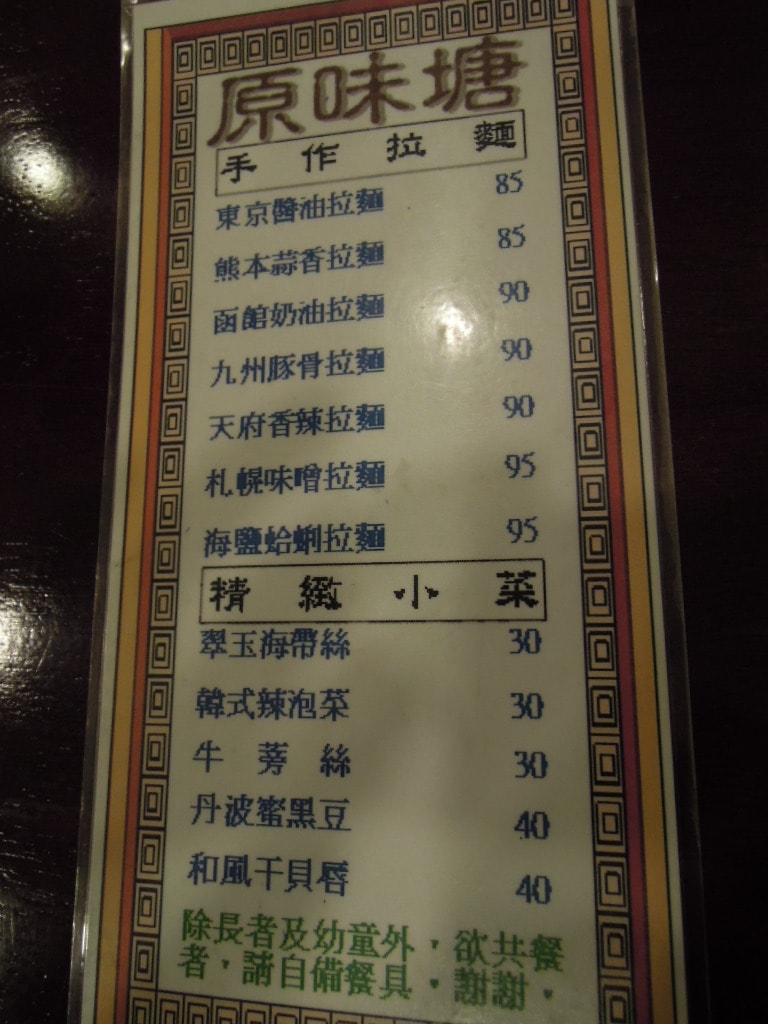 原味塘
手作拉麵
東京醬油拉麵 85
熊本蒜香拉麵 85
函館奶油拉麵 90
九州豚骨拉麵 90
天府香辣拉麵 90
札幌味噌拉麵 95
海鹽蛤蜊拉麵 95
精緻小菜
翠玉海帶絲 30
韓式辣泡菜 30
牛蒡絲 30
丹波蜜黑豆 40
和風干貝唇 40
除長者及幼童外，欲共餐
者，請自備餐具，謝謝。